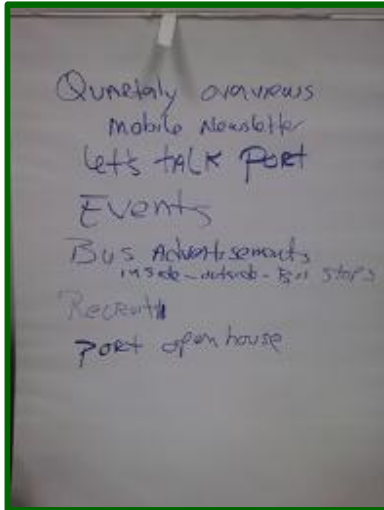 Quartaly overviews
Mobile Newsletter
Let's TALK PORT
Events
Bus Advertisements
inside-outside-Bus Stops
PORT open house